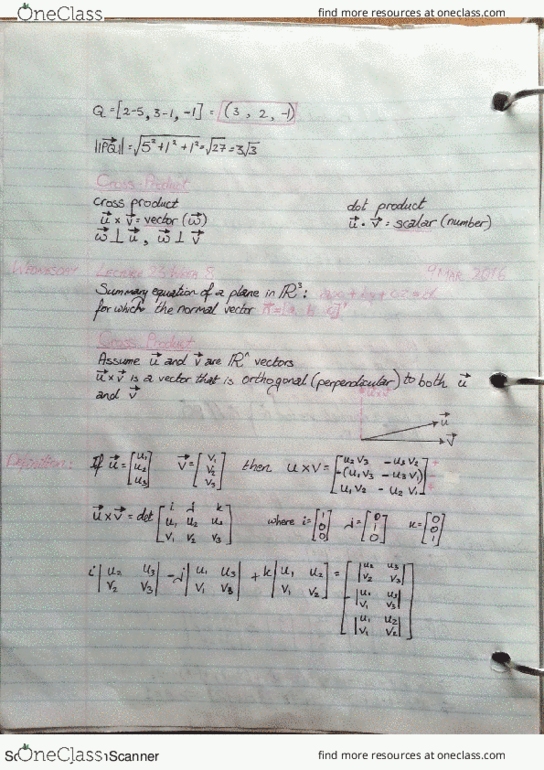 OneClass find more resources at oneclass.com
Q = [2-5, 3-1, -1] = (3, 2, -1)
||PQ|| = √5²+1²+1² = √27 = 3√3
Cross Product
cross product dot product
u⃗ x v⃗ = vector (w⃗) u⃗ • v⃗ = scalar (number)
w⃗ ⊥ u⃗, w⃗ ⊥ v⃗
Wednesday Lecture 23 Week 8 9 Mar 2016
Summary equation of a plane in ℝ³: ax + by + cz = d
for which the normal vector n⃗ = [a, b, c]
Cross Product
Assume u⃗ and v⃗ are ℝⁿ vectors
u⃗ x v⃗ is a vector that is orthogonal (perpendicular) to both u⃗
and v⃗
u⃗
v⃗
Definition: If u⃗ = [u₁ u₂ u₃] v⃗ = [v₁ v₂ v₃] then u x v = [u₂v₃ - u₃v₂
-(u₁v₃ - u₃v₁)
u₁v₂ - u₂v₁]
u⃗ x v⃗ = det [i j k
u₁ u₂ u₃
v₁ v₂ v₃] where i = [1 0 0] j = [0 1 0] k = [0 0 1]
i |u₂ u₃ / v₂ v₃| - j |u₁ u₃ / v₁ v₃| + k |u₁ u₂ / v₁ v₂| = [|u₂ u₃ / v₂ v₃|
-|u₁ u₃ / v₁ v₃|
|u₁ u₂ / v₁ v₂|]
OneClass Scanner find more resources at oneclass.com